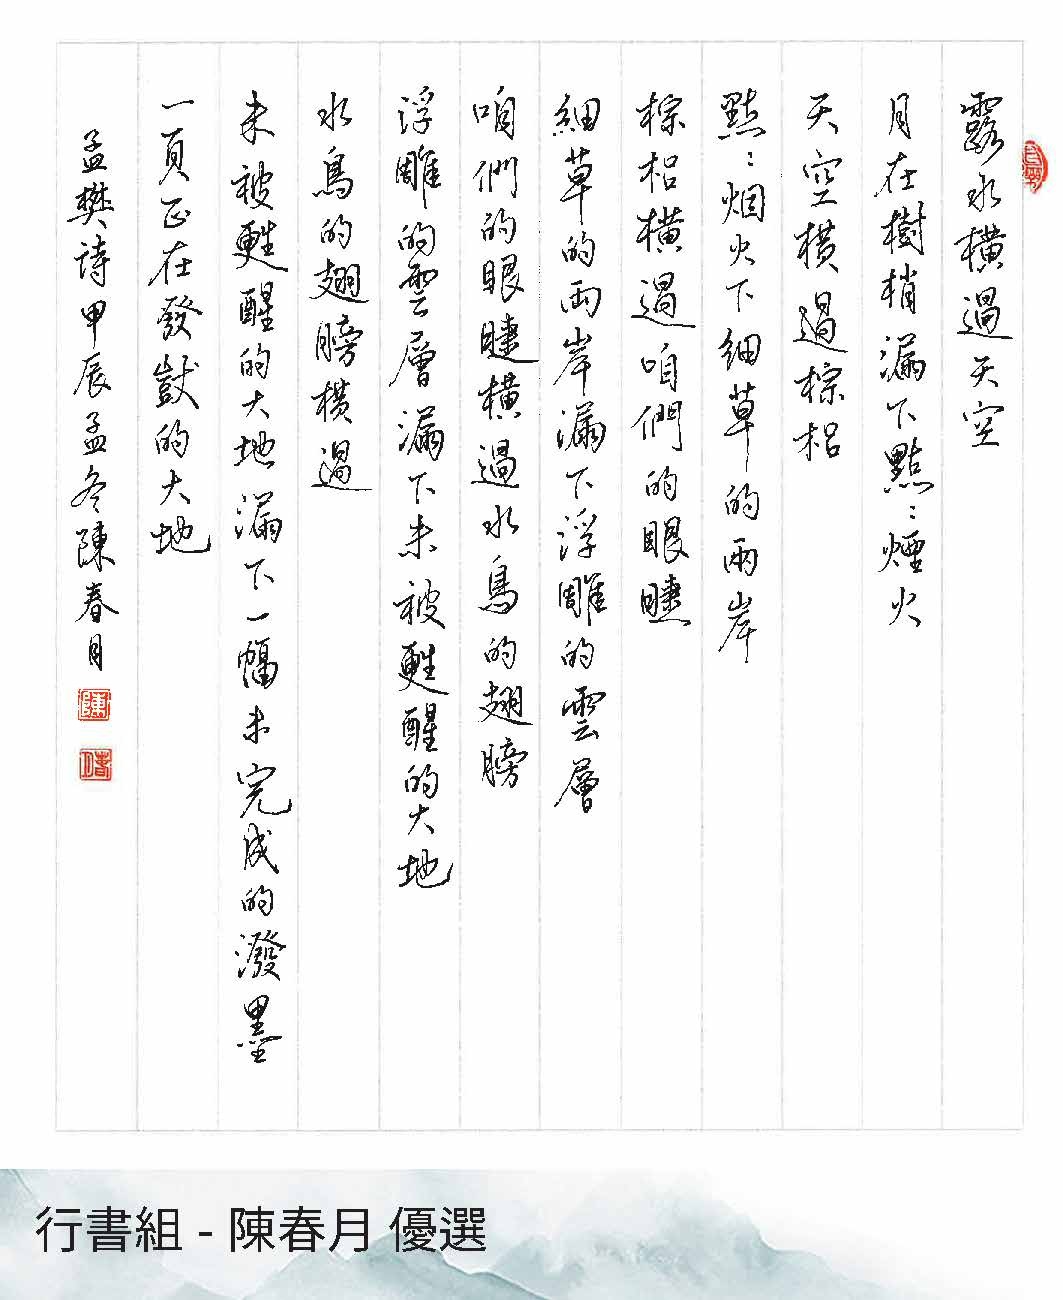 露水橫過天空
月在樹梢漏下點：煙火
天空橫過棕梠
點：烟火下細草的兩岸
棕梠橫過咱們的眼睫
細草的兩岸漏下浮雕的雲層
咱們的眼睫橫過水鳥的翅膀
浮雕的雲層漏下未被甦醒的大地
水鳥的翅膀橫過
未被甦醒的大地漏下一幅未完成的潑墨
一頁正在發獃的大地
孟樊詩甲辰孟冬陳春月
陳
行書組 - 陳春月 優選